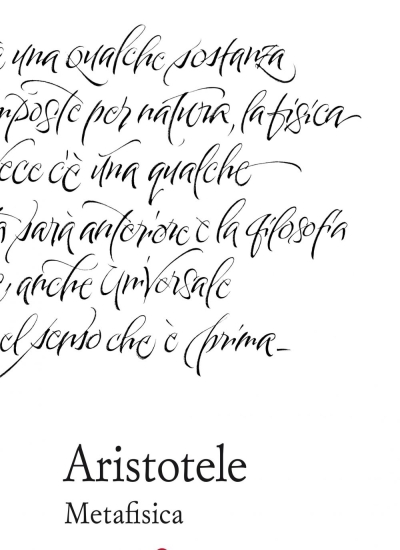 è una qualche sostanza
mposte per natura, la fisica
ece c'è una qualche
à sarà anteriore e la filosofia
e, anche universale
el senso che è prima_
Aristotele
Metafisica